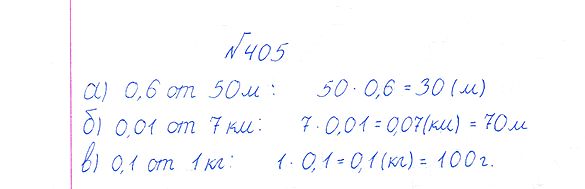 №405
а) 0,6 от 50м: 50·0,6=30(м)
б) 0,01 от 7км: 7·0,01=0,07(км)=70м
в) 0,1 от 1кг: 1·0,1=0,1(кг)=100г.